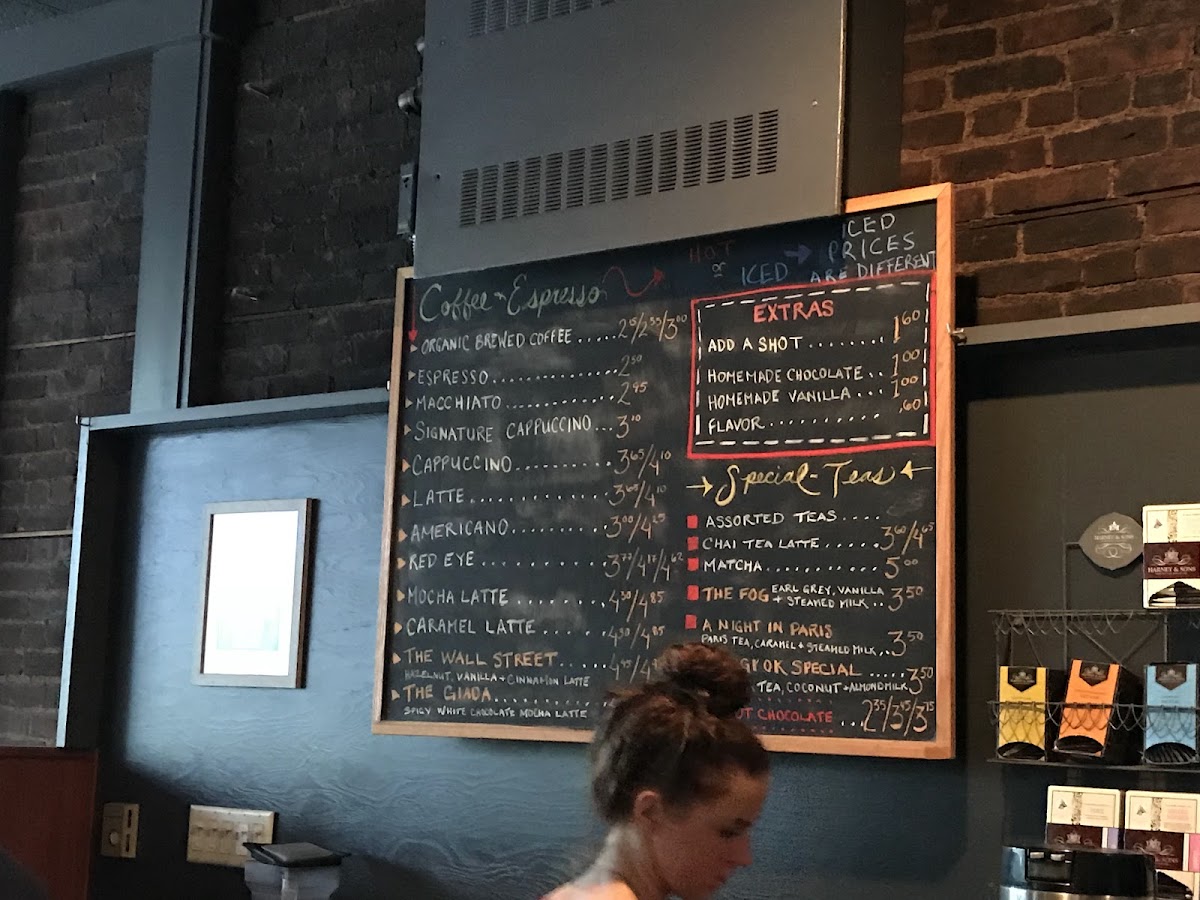 Coffee - Espresso
HOT or ICED
ICED PRICES ARE DIFFERENT
ORGANIC BREWED COFFEE ..... 2 15/2 55/3 00
ESPRESSO ............ 2 50
MACCHIATO ............ 2 95
SIGNATURE CAPPUCCINO ... 3 10
CAPPUCCINO .......... 3 65/4 10
LATTE ............ 3 65/4 10
AMERICANO .......... 3 00/4 25
RED EYE ............ 3 77/4 17/4 62
MOCHA LATTE .......... 4 50/4 85
CARAMEL LATTE ...... 4 50/4 85
THE WALL STREET .....
HAZELNUT, VANILLA + CINNAMON LATTE
THE GIADA ..........
SPICY WHITE CHOCOLATE MOCHA LATTE
EXTRAS
ADD A SHOT ........ 1 60
HOMEMADE CHOCOLATE .. 1 00
HOMEMADE VANILLA ... 1 00
FLAVOR ......... .60
Special - Teas
ASSORTED TEAS ....
CHAI TEA LATTE ..... 3 60/4 65
MATCHA ............ 5 00
THE FOG EARL GREY, VANILLA
+ STEAMED MILK .. 3 50
A NIGHT IN PARIS
PARIS TEA, CARAMEL + STEAMED MILK ... 3 50
SPECIAL ..... 3 50
TEA, COCONUT + ALMOND MILK
HOT CHOCOLATE ... 2 35/3 45/3 75
HARNEY & SONS
HARNEY & SONS